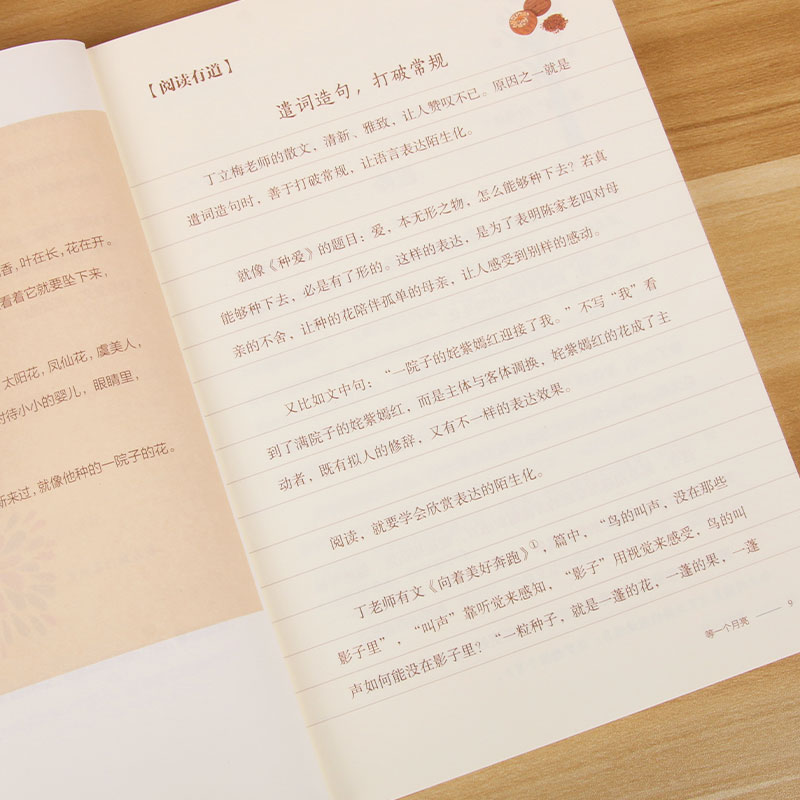 香，叶在长，花在开。
看着它就要坠下来，
太阳花，凤仙花，虞美人，
对待小小的婴儿，眼睛里，
新来过，就像他种的一院子的花。
【阅读有道】
遣词造句，打破常规
丁立梅老师的散文，清新、雅致，让人赞叹不已。原因之一就是
遣词造句时，善于打破常规，让语言表达陌生化。
就像《种爱》的题目：爱，本无形之物，怎么能够种下去？若真
能够种下去，必是有了形的。这样的表达，是为了表明陈家老四对母
亲的不舍，让种的花陪伴孤单的母亲，让人感受到别样的感动。
又比如文中句：“一院子的姹紫嫣红迎接了我。”不写“我”看
到了满院子的姹紫嫣红，而是主体与客体调换，姹紫嫣红的花成了主
动者，既有拟人的修辞，又有不一样的表达效果。
阅读，就要学会欣赏表达的陌生化。
丁老师有文《向着美好奔跑》①，篇中，“鸟的叫声，没在那些
影子里”，“叫声”靠听觉来感知，“影子”用视觉来感受，鸟的叫
声如何能没在影子里？“一粒种子，就是一蓬的花，一蓬的果，一蓬
等一个月亮 —— 9